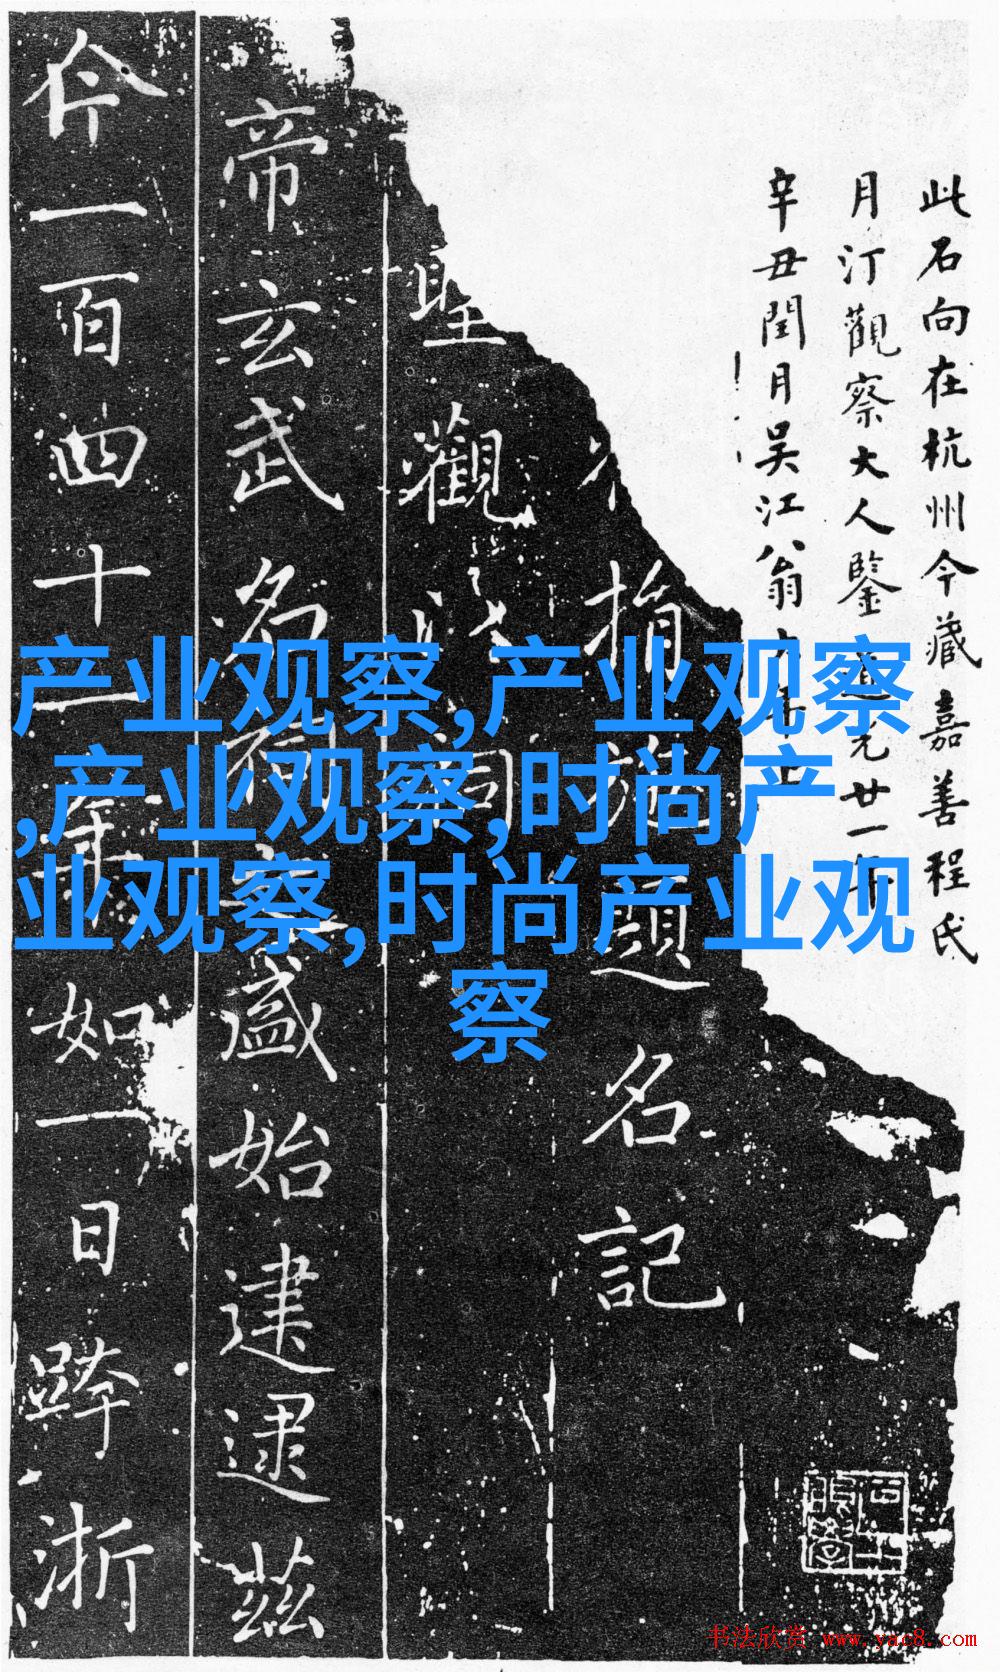 此石向在杭州今藏嘉善程氏
月汀觀察大人鑒 元廿一年
辛丑閏月吴江翁
捐施題名記
聖觀
帝玄武名 盛始建逮兹
一百四十一年 如一日跨浙
产业观察,产业观察
,产业观察,时尚产
业观察,时尚产业观
察
书法欣赏 www.yac8.com